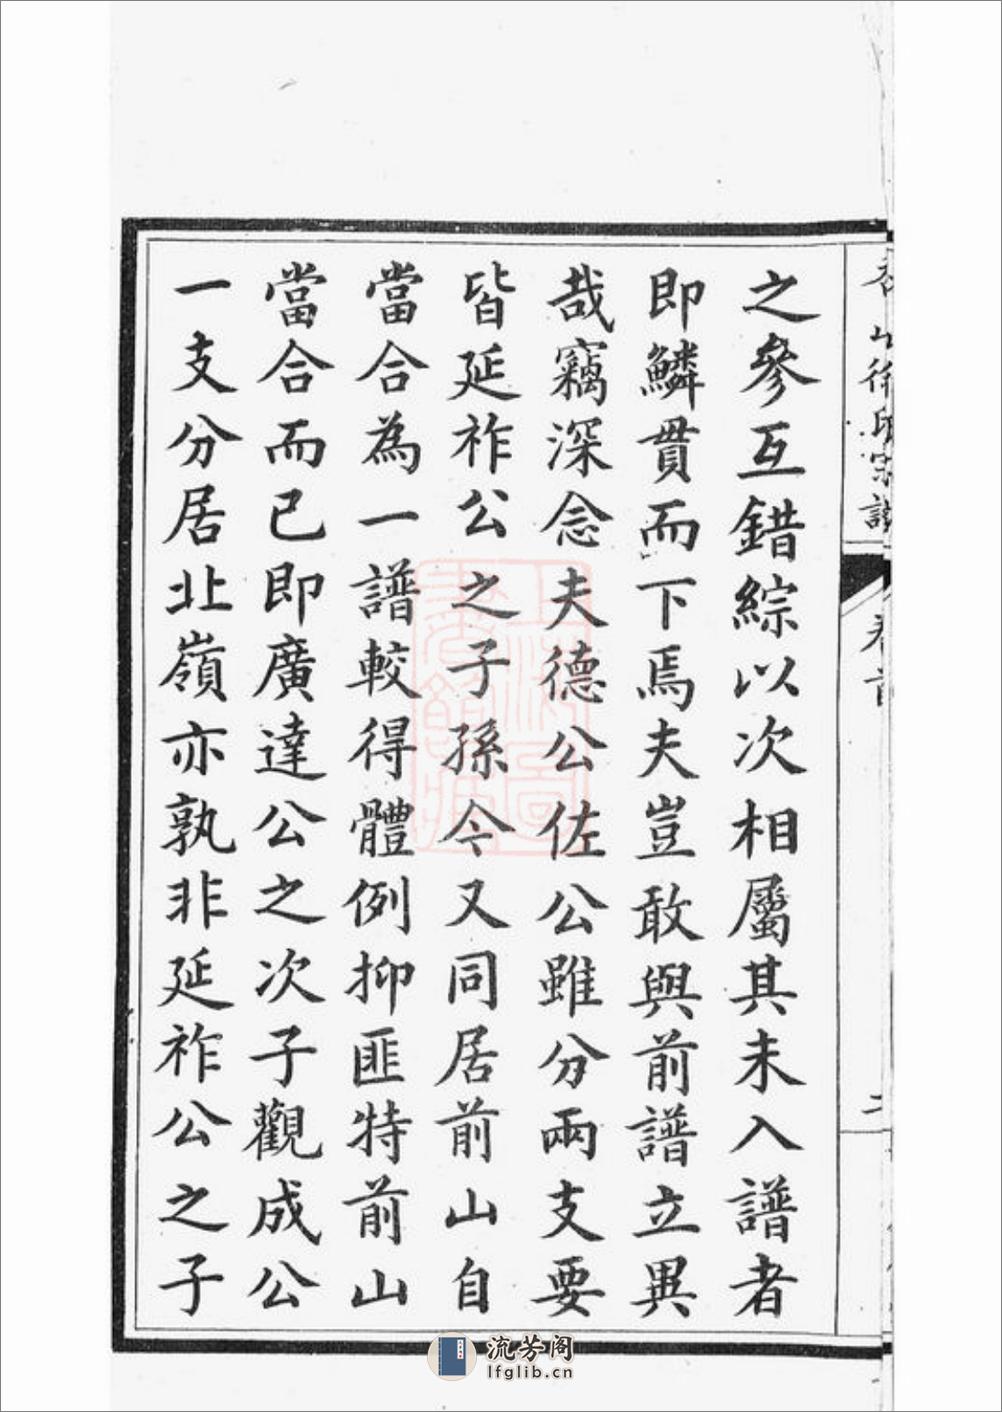 山徐氏宗譜
卷首
之參互錯綜以次相屬其未入譜者
即鱗貫而下焉夫豈敢與前譜立異
哉竊深念夫德公佐公雖分兩支要
皆延祚公之子孫今又同居前山自
當合為一譜較得體例抑匪特前山
當合而已即廣達公之次子觀成公
一支分居北嶺亦孰非延祚公之子
流芳阁
lfglib.cn